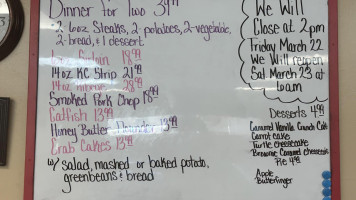 Dinner for Two 34⁹⁹
2 6oz Steaks, 2 potatoes, 2-vegetable,
2-bread, & 1 dessert
Sirloin 18⁹⁹
14oz KC Strip 21⁹⁹
14oz Ribeye 28⁹⁹
Smoked Pork Chop 18⁹⁹
Catfish 13⁹⁹
Honey Butter Flounder 13⁹⁹
Crab Cakes 13⁹⁹
w/ salad, mashed or baked potato,
greenbeans & bread
We Will
Close at 2pm
Friday March 22
We Will reopen
Sat March 23 at
6am
Desserts 4⁹⁹
Caramel Vanilla Crunch Cake
Carrot cake
Turtle cheesecake
Brownie Caramel cheesecake
Pie 4⁹⁹
Apple
Butterfinger